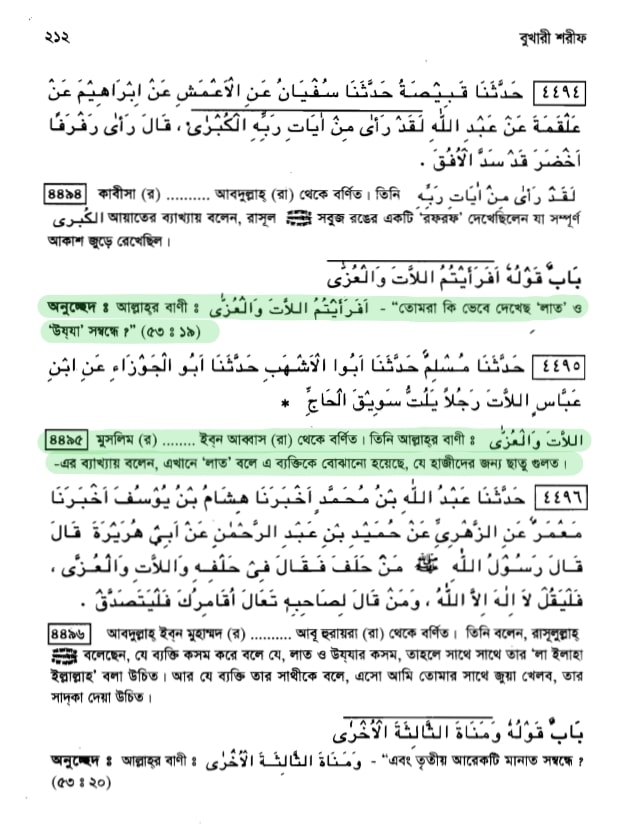 ২১২ বুখারী শরীফ
٤٤٩٤ حَدَّثَنَا قَبِيْصَةُ حَدَّثَنَا سُفْيَانُ عَنِ الْاَعْمَشِ عَنْ اِبْرَاهِيْمَ عَنْ
عَلْقَمَةَ عَنْ عَبْدِ اللّٰهِ لَقَدْ رَأٰى مِنْ اٰيَاتِ رَبِّهِ الْكُبْرٰى ، قَالَ رَأٰى رَفْرَفًا
اَخْضَرَ قَدْ سَدَّ الْاُفُقَ .
৪৪৯৪ কাবীসা (র) .......... আবদুল্লাহ্ (রা) থেকে বর্ণিত। তিনি لَقَدْ رَأٰى مِنْ اٰيَاتِ رَبِّهِ
الْكُبرى আয়াতের ব্যাখ্যায় বলেন, রাসূল ﷺ সবুজ রঙের একটি ‘রফরফ’ দেখেছিলেন যা সম্পূর্ণ
আকাশ জুড়ে রেখেছিল।
بَابٌ قَوْلُهُ اَفَرَأَيْتُمُ اللاَّتَ وَالْعُزّٰى
অনুচ্ছেদ ঃ আল্লাহ্‌র বাণী ঃ اَفَرَأَيْتُمُ اللاَّتَ وَالْعُزّٰى - “তোমরা কি ভেবে দেখেছ ‘লাত’ ও
‘উয্‌যা’ সম্বন্ধে ?” (৫৩ ঃ ১৯)
٤٤٩٥ حَدَّثَنَا مُسْلِمٌ حَدَّثَنَا اَبُوا الْاَشْهَبِ حَدَّثَنَا اَبُو الْجَوْزَاءِ عَنِ ابْنِ
عَبَّاسٍ اللاَّتَ رَجُلاً يَلُتُّ سَوِيْقَ الْحَاجِّ *
৪৪৯৫ মুসলিম (র) ........ ইব্‌ন আব্বাস (রা) থেকে বর্ণিত। তিনি আল্লাহ্‌র বাণী ঃ اللاَّتَ وَالْعُزّٰى
-এর ব্যাখ্যায় বলেন, এখানে ‘লাত’ বলে এ ব্যক্তিকে বোঝানো হয়েছে, যে হাজীদের জন্য ছাতু গুলত।
٤٤٩٦ حَدَّثَنَا عَبْدُ اللّٰهِ بْنُ مُحَمَّدٍ اَخْبَرَنَا هِشَامُ بْنُ يُوْسُفَ اَخْبَرَنَا
مَعْمَرٌ عَنِ الزُّهْرِيِّ عَنْ حُمَيْدِ بْنِ عَبْدِ الرَّحْمٰنِ عَنْ اَبِيْ هُرَيْرَةَ قَالَ
قَالَ رَسُوْلُ اللّٰهِ ﷺ مَنْ حَلَفَ فَقَالَ فِىْ حَلْفِهِ وَاللاَّتِ وَالْعُزّٰى ،
فَلْيَقُلْ لاَ اِلٰهَ اِلاَّ اللّٰهُ ، وَمَنْ قَالَ لِصَاحِبِهِ تَعَالَ اُقَامِرْكَ فَلْيَتَصَدَّقْ .
৪৪৯৬ আবদুল্লাহ্ ইব্‌ন মুহাম্মদ (র) .......... আবূ হুরায়রা (রা) থেকে বর্ণিত। তিনি বলেন, রাসূলুল্লাহ্
ﷺ বলেছেন, যে ব্যক্তি কসম করে বলে যে, লাত ও উয্‌যার কসম, তাহলে সাথে সাথে তার ‘লা ইলাহা
ইল্লাল্লাহ’ বলা উচিত। আর যে ব্যক্তি তার সাথীকে বলে, এসো আমি তোমার সাথে জুয়া খেলব, তার
সাদ্‌কা দেয়া উচিত।
بَابٌ قَوْلُهُ وَمَنَاةَ الثَّالِثَةَ الْاُخْرٰى
অনুচ্ছেদ ঃ আল্লাহ্‌র বাণী ঃ وَمَنَاةَ الثَّالِثَةَ الْاُخْرٰى - “এবং তৃতীয় আরেকটি মানাত সম্বন্ধে ?
(৫৩ ঃ ২০)